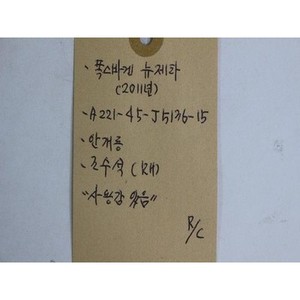 · 폭스바겐 뉴제타
(2011년)
· A221-45-J5136-15
· 안개등
· 조수석 (1개)
"사용감 있음"
R/C